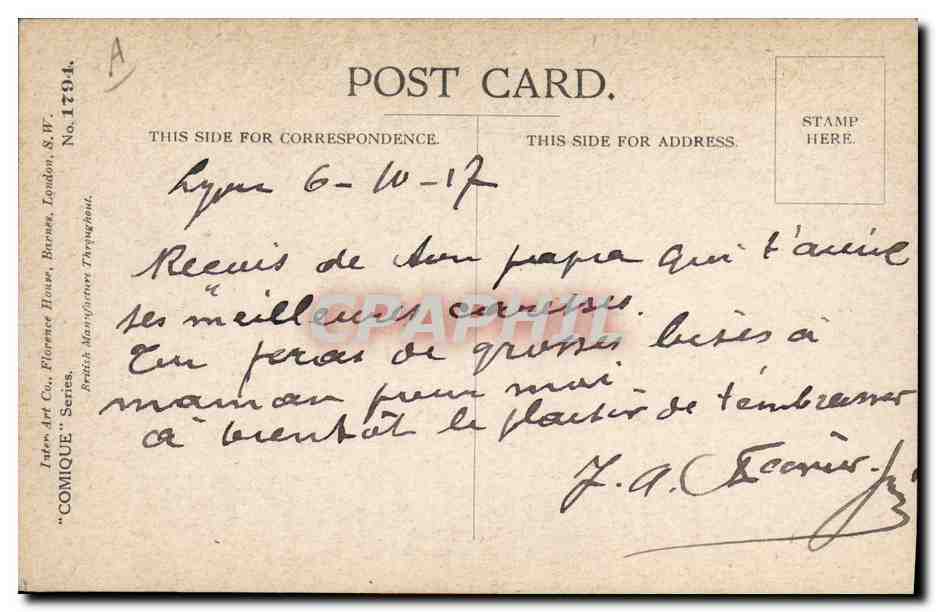 A
POST CARD.
THIS SIDE FOR CORRESPONDENCE.
THIS SIDE FOR ADDRESS.
STAMP
HERE.
Inter-Art Co., Florence House, Barnes, London, S.W.
"COMIQUE" Series.
No. 1794.
British Manufacture Throughout.
Lyon 6-10-17
Recois de ton papa qui t'aime
ses meilleures caresses.
Tu feras de grosses bises à
maman pour moi.
à bientôt le plaisir de t'embrasser
J. A.
CPAPHIL